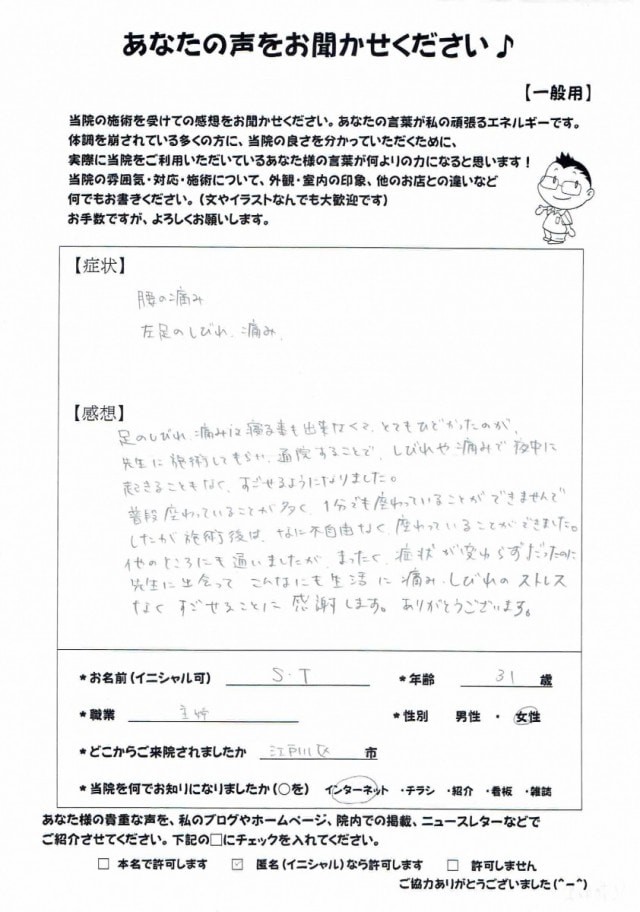 あなたの声をお聞かせください♪
【一般用】
当院の施術を受けての感想をお聞かせください。あなたの言葉が私の頑張るエネルギーです。
体調を崩されている多くの方に、当院の良さを分かっていただくために、
実際に当院をご利用いただいているあなた様の言葉が何よりの力になると思います！
当院の雰囲気・対応・施術について、外観・室内の印象、他のお店との違いなど
何でもお書きください。（文やイラストなんでも大歓迎です）
お手数ですが、よろしくお願いします。
【症状】
腰の痛み
左足のしびれ、痛み、
【感想】
足のしびれ、痛みは寝る事も出来なくて、とてもひどかったのが、
先生に施術してもらい、通院することで、しびれや痛みで夜中に
起きることもなく、すごせるようになりました。
普段座わっていることが多く、1分でも座わっていることができませんで
したが施術後は、なに不自由なく、座わっていることができました。
他のところにも通いましたが、まったく、症状が変わらずだったのに
先生に出会って こんなにも生活に痛み、しびれのストレス
なく すごせることに感謝します。ありがとうございます。
*お名前（イニシャル可） S・T *年齢 31 歳
*職業 主婦 *性別 男性 ・ 女性
*どこからご来院されましたか 江戸川区 市
*当院を何でお知りになりましたか（○を） インターネット ・チラシ ・紹介 ・看板 ・雑誌
あなた様の貴重な声を、私のブログやホームページ、院内での掲載、ニュースレターなどで
ご紹介させてください。下記の□にチェックを入れてください。
□ 本名で許可します ☑ 匿名（イニシャル）なら許可します □ 許可しません
ご協力ありがとうございました（^－^）